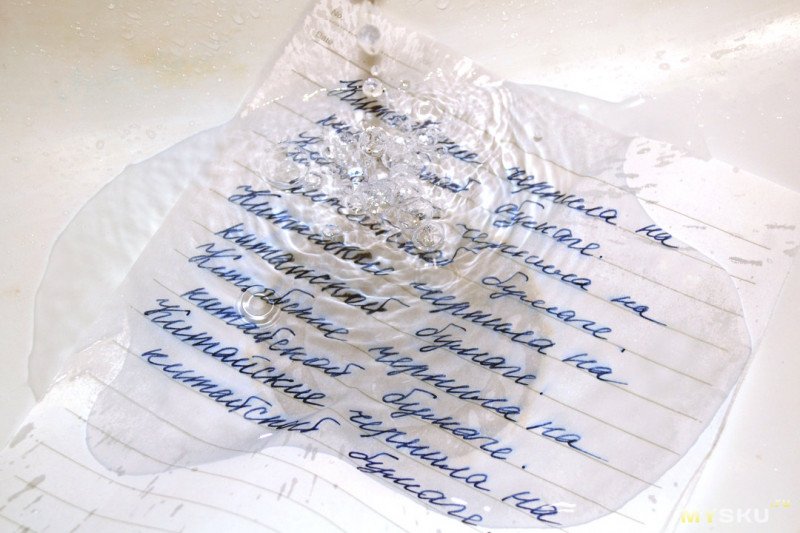 No
Date
Китайские чернила на
китайской бумаге.
Китайские чернила на
китайской бумаге.
Китайские чернила на
китайской бумаге.
Китайские чернила на
китайской бумаге.
Китайские чернила на
китайской бумаге.
MYSKU.ru